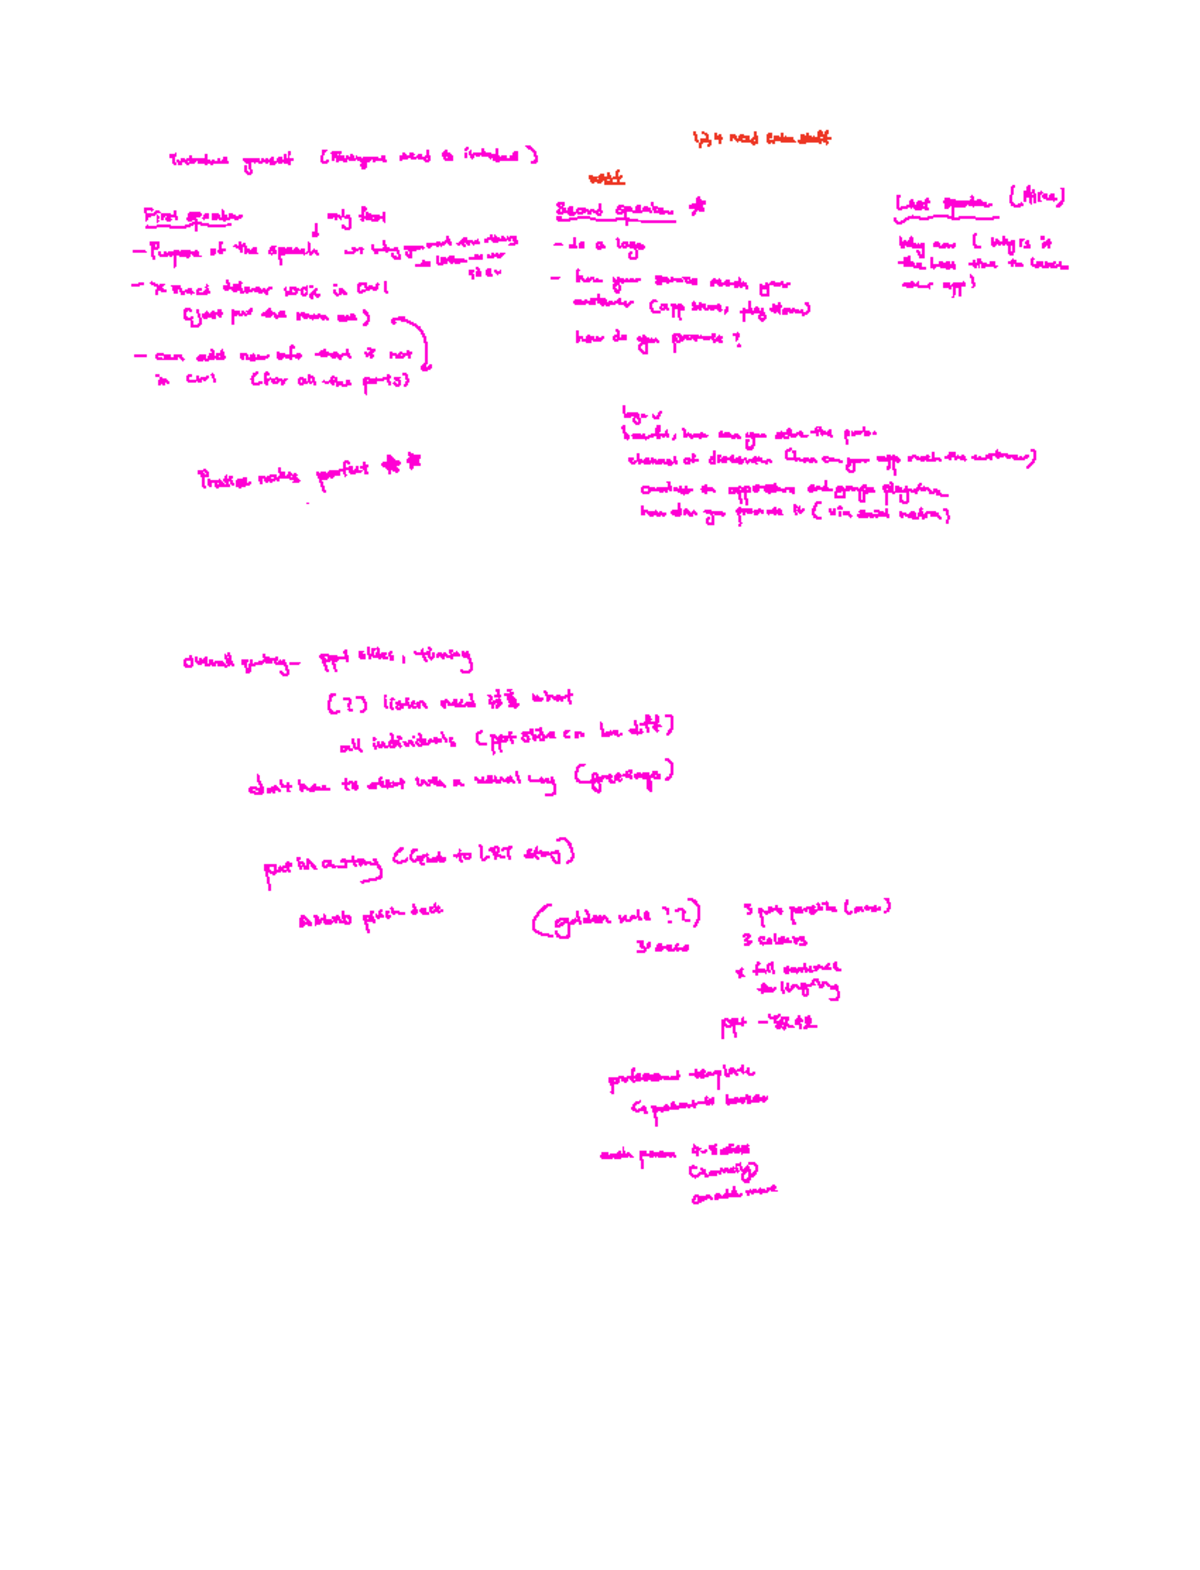 1,2,4 need extra stuff
Introduce yourself (Everyone need to introduce)
First speaker
only first
- Purpose of the speech
why you want the others
to listen to our
idea
- x need deliver 100% in CW1
(just put the main one)
- can add new info that is not
in CW1 (for all the parts)
Practice makes perfect
Second speaker
- do a logo
- how your service reach your
customer (app store, play store)
how do you promote?
Last speaker
Why now (Why is it
the best time to launch
our app)
logo
benefit, how can you solve the prob.
channel of distribution (how can your app reach the customer)
available on appstore and google playstore
how do you promote it (via social media)
overall quality - ppt slides, timing
(?) listen need what
all individuals (ppt slide can be diff)
don't have to start with a usual way (greetings)
put in a story (Grab to LRT story)
Airbnb pitch deck
(golden rule ??)
3 secs
5 pts per slide (max)
3 colours
x full sentence
ppt
professional template
each person 4-5 slides
can add more